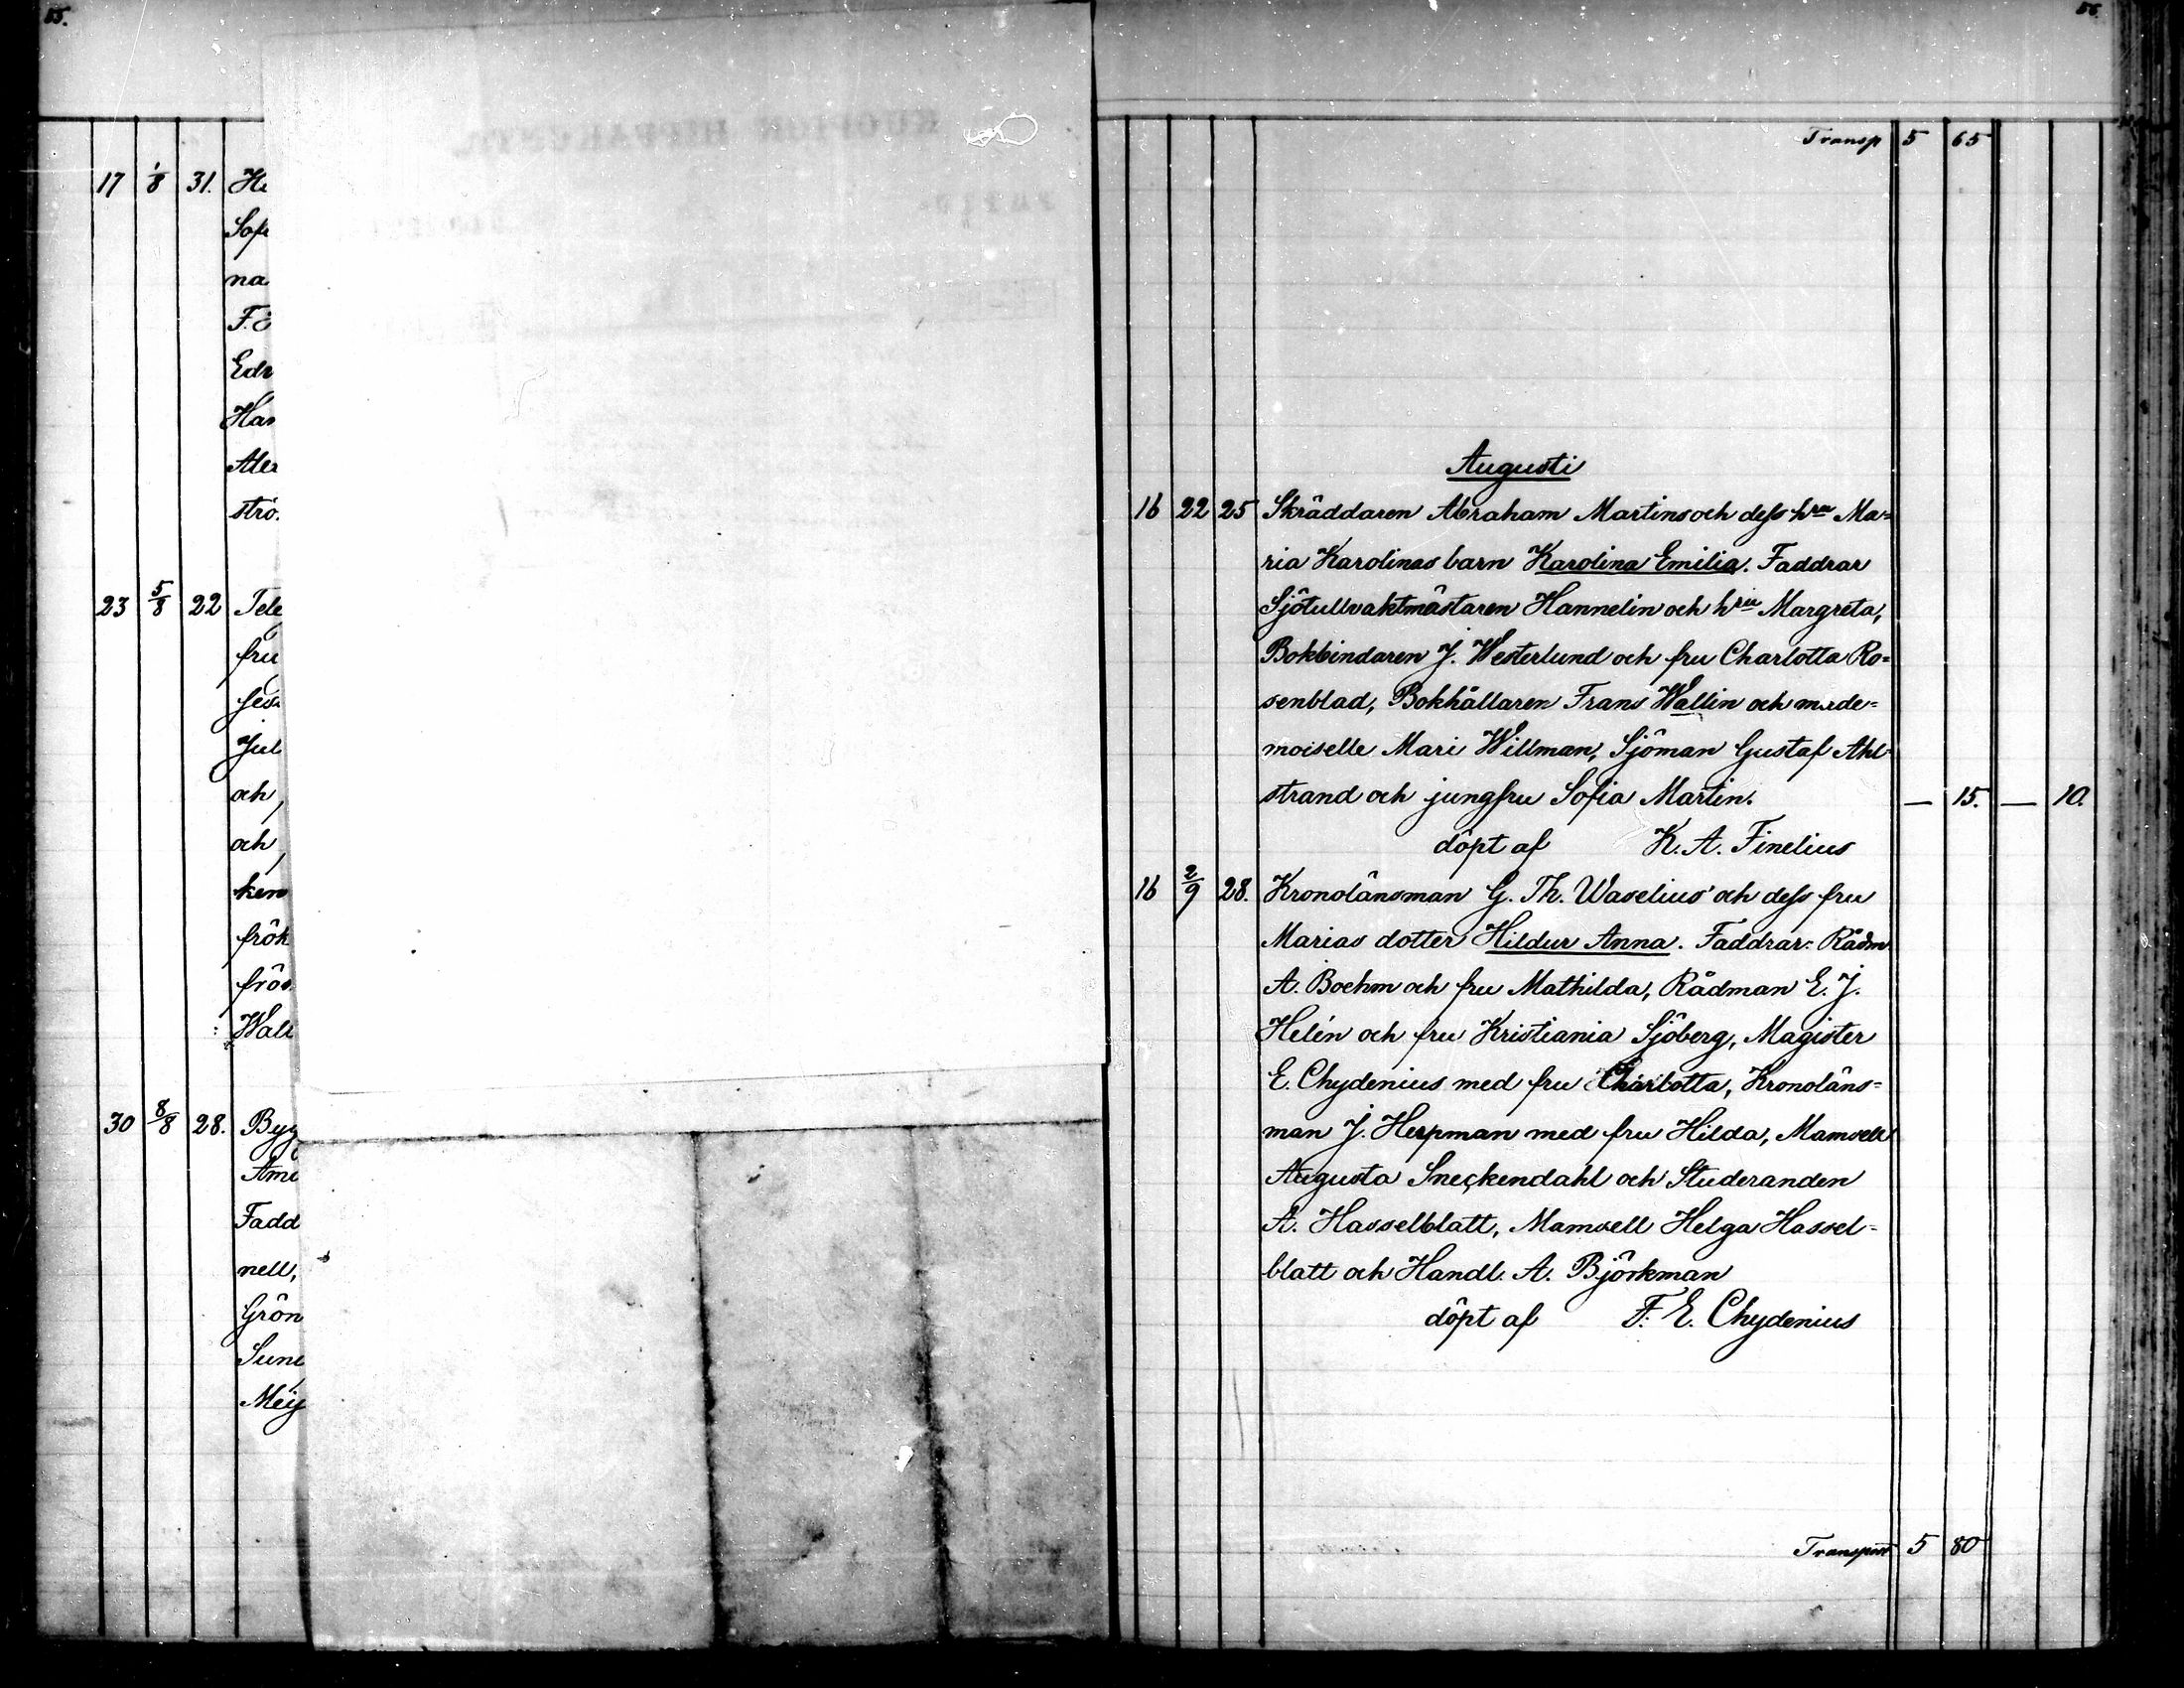 55.
17 1/8 31. He
Sofi
na
F. E
Edv
Has
Alex
strö
23 5/8 22 Tele
fru
Jul
och
och
ken
frök
frös
Wall
30 8/8 28. Byg
Ama
Fadd
nell,
Grön
Sund
Meij
56.
Transp 5 65
Augusti
16 22 25 Skräddaren Abraham Martins och dess hru Ma=
ria Karolinas barn Karolina Emilia. Faddrar
Sjötullvaktmästaren Hannelin och hru Margreta,
Bokbindaren J. Westerlund och fru Charlotta Ro=
senblad, Bokhållaren Frans Wallin och made=
moiselle Mari Willman, Sjöman Gustaf Ahl=
strand och jungfru Sofia Martin. — 15. — 10.
döpt af K. A. Finelius
16 2/9 28. Kronolänsman G. Th. Waselius och dess fru
Marias dotter Hildur Anna. Faddrar: Rådm
A. Boehm och fru Mathilda, Rådman E. J.
Helén och fru Kristiania Sjöberg, Magister
E. Chydenius med fru Charlotta, Kronoläns=
man J. Herpman med fru Hilda, Mamsell
Augusta Sneckendahl och Studeranden
A. Hasselblatt, Mamsell Helga Hassel=
blatt och Handl. A. Björkman
döpt af F. E. Chydenius
Transport 5 80